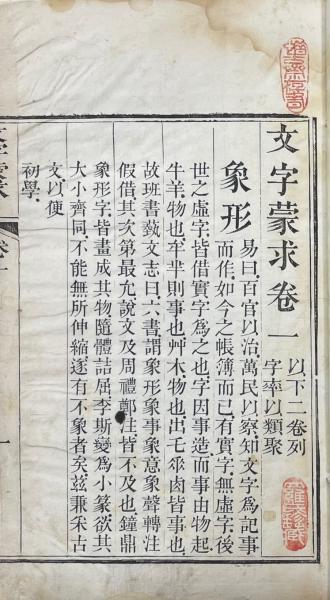 文字蒙求卷一
以下二卷列
字率以類聚
象形
易曰百官以治萬民以察知文字爲記事
而作如今之帳簿而已有實字無虛字後
世之虛字皆借實字爲之也字因事造而事由物起
牛羊物也牟芈則事也艸木物也出乇𠂹鹵皆事也
故班書蓺文志曰六書謂象形象事象意象聲轉注
假借其次第最允說文及周禮鄭注皆不及也鐘鼎
象形字皆畫成其物隨體詰屈李斯變爲小篆欲其
大小齊同不能無所伸縮遂有不象者矣茲兼采古
文以便
初學